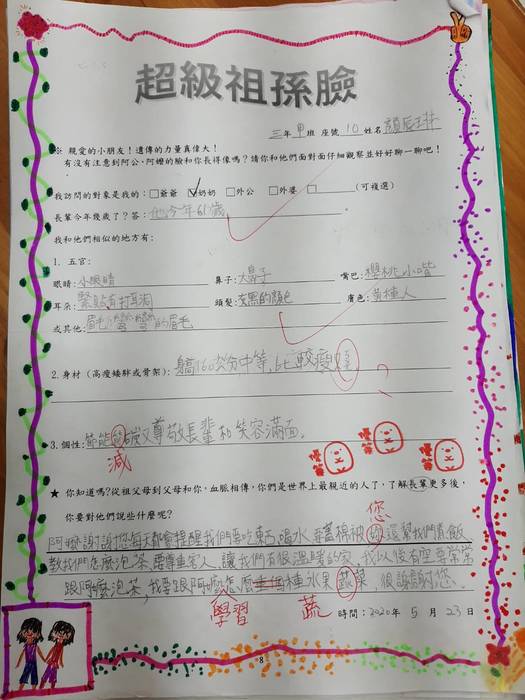 超級祖孫臉
三年甲班 座號10 姓名顏辰
※ 親愛的小朋友！遺傳的力量真偉大！
有沒有注意到阿公、阿嬤的臉和你長得像嗎？請你和他們面對面仔細觀察並好好聊一聊吧！
我訪問的對象是我的：□爺爺 ☑奶奶 □外公 □外婆 □ (可複選)
長輩今年幾歲了？答：他今年61歲
我和他們相似的地方有：
1. 五官：
眼睛：小眼睛 鼻子：大鼻子 嘴巴：櫻桃小嘴
耳朵：緊貼有打耳洞 頭髮：灰黑的顏色 膚色：黃種人
或其他：眉毛彎彎的眉毛
2. 身材（高瘦矮胖或骨架）：身高160公分中等,比較瘦
3. 個性：節能碳又尊敬長輩和笑容滿面。
減
優等 優等 優等
★ 你知道嗎？從祖父母到父母和你，血脈相傳，你們是世界上最親近的人了，了解長輩更多後，
你要對他們說些什麼呢？
您
阿嬤謝謝您每天都會提醒我們要吃東西、喝水、蓋棉被,還幫我們煮飯
教我們怎麼泡茶,要尊重客人,讓我們有很溫暖的家,我以後有空要常常
跟阿嬤泡茶,我要跟阿嬤怎麼種水果菜,很謝謝您。
學習 蔬
時間：2020年 5 月 23 日
8